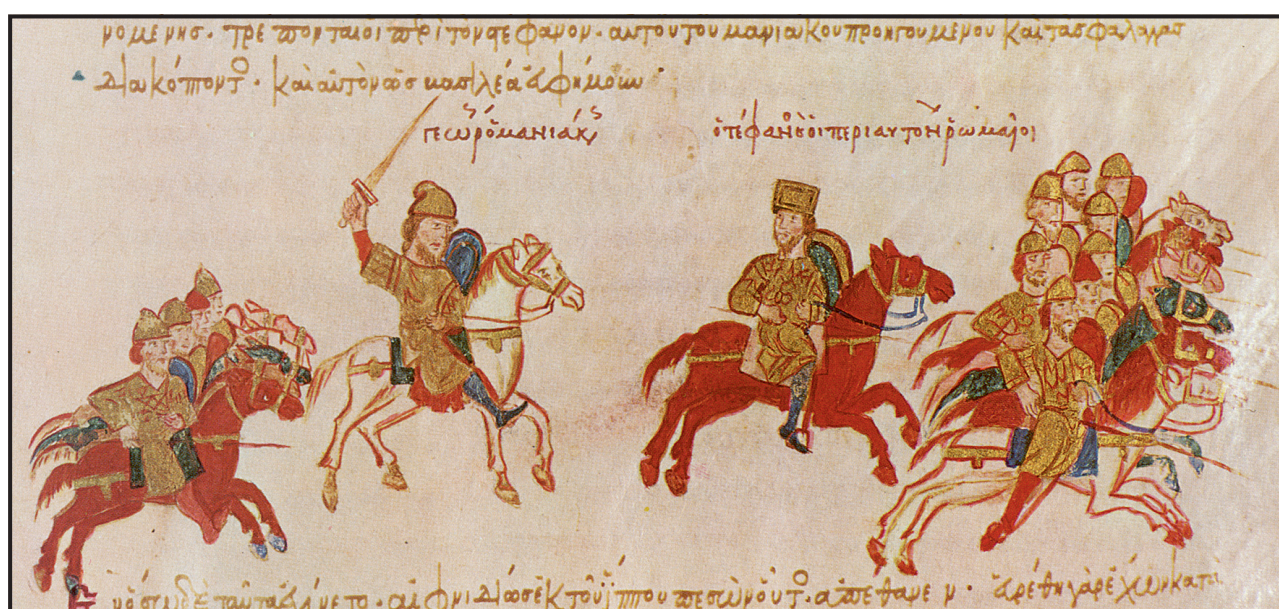 νομένης· τρέπονται οἱ περὶ τὸν στέφανον· αὐτοῦ τοῦ μανιάκου προηγουμένου καὶ τὰς φάλαγγας
διακόπτοντο· καὶ αὐτὸν ὡς βασιλέα εὐφήμουν·
γεωρ ὁ μανιάκς
ὁ στέφανος οἱ περι αυτον ῥωμαῖοι
δὲ ταῦτα ἐγίνετο· αἰφνιδίως ἐκ τοῦ ἵππου πεσὼν οὗτο· ἀπέθανεν· εὑρέθη γὰρ ἔχων κατὰ